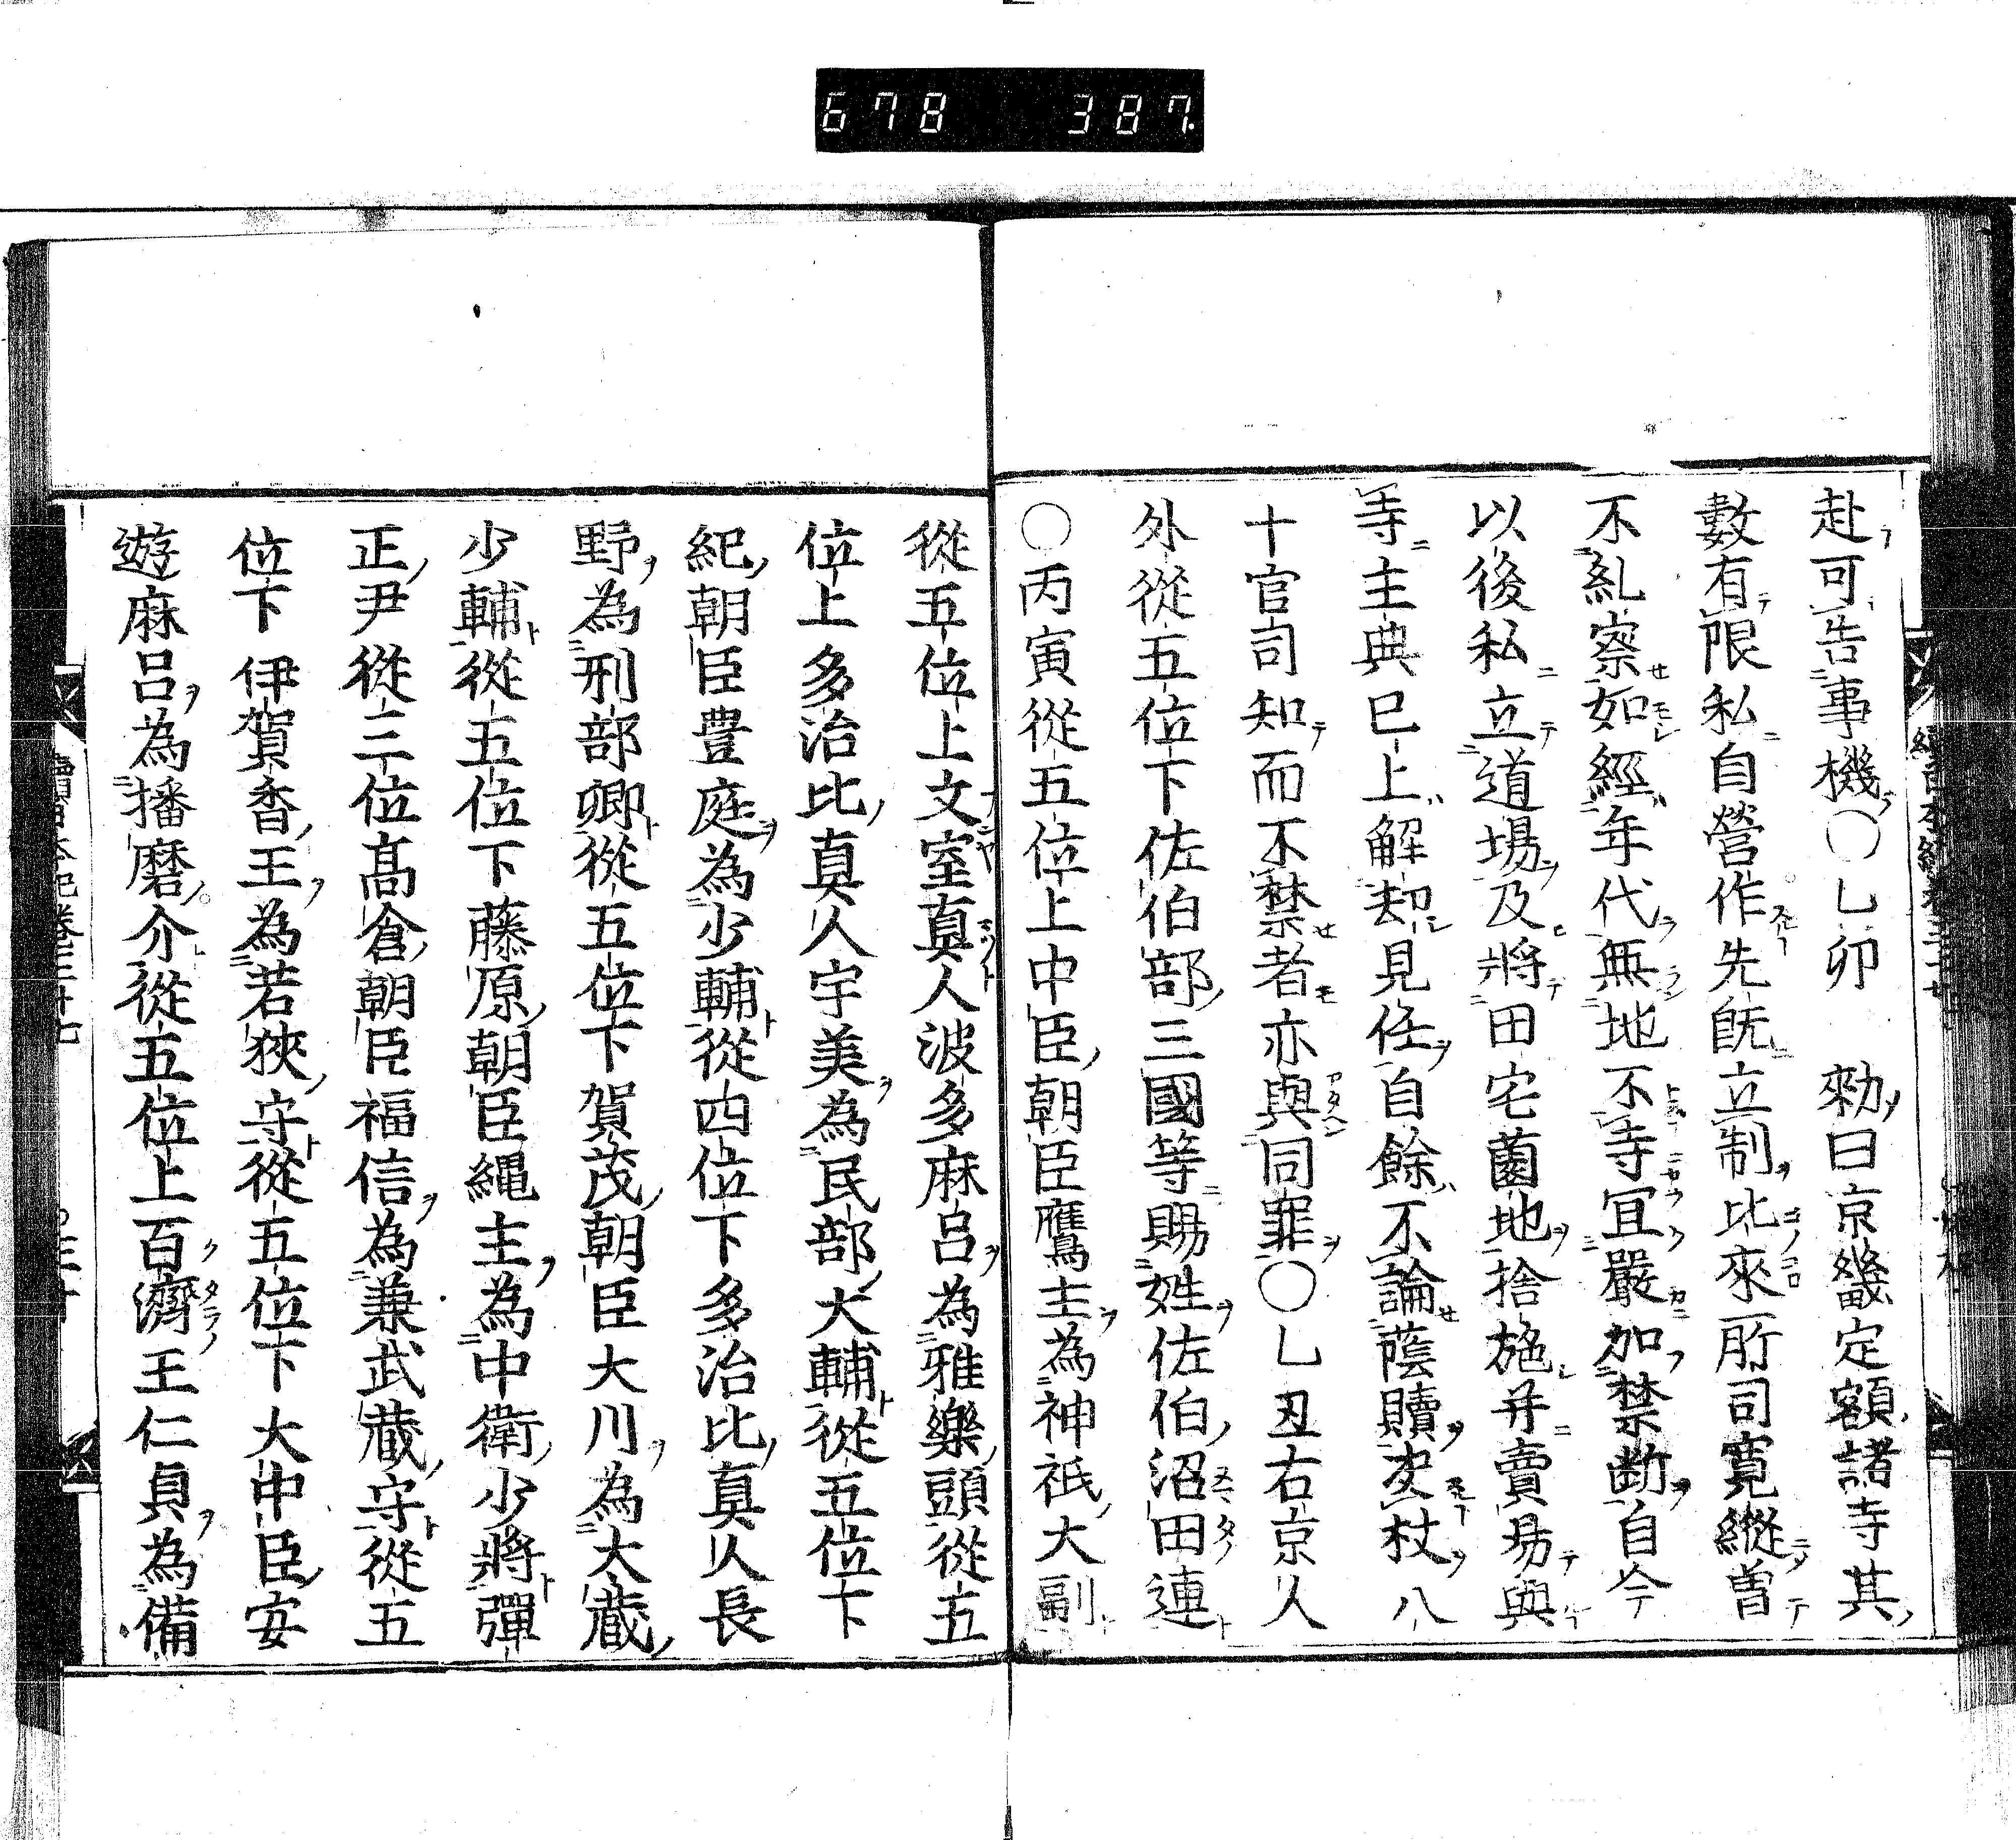 678 387.
赴可告事機○乙卯 勑曰京畿定額諸寺其
數有限私自營作先既立制比來所司寛縱曽
不糺察如經年代無地不寺宜嚴加禁断自今
以後私立道場及將田宅薗地捨施并賣易與
寺主典已上解却見任自餘不論蔭贖决杖八
十官司知而不禁者亦與同罪○乙丑右京人
外從五位下佐伯部三國等賜姓佐伯沼田連
○丙寅從五位上中臣朝臣鷹主為神祇大副
從五位上文室真人波多麻呂為雅樂頭從五
位上多治比真人宇美為民部大輔從五位下
紀朝臣豊庭為少輔從四位下多治比真人長
野為刑部卿從五位下賀茂朝臣大川為大藏
少輔從五位下藤原朝臣縄主為中衛少將彈
正尹從三位髙倉朝臣福信為兼武藏守從五
位下伊賀香王為若狹守從五位下大中臣安
遊麻呂為播磨介從五位上百濟王仁貞為備
續日本紀卷三十七